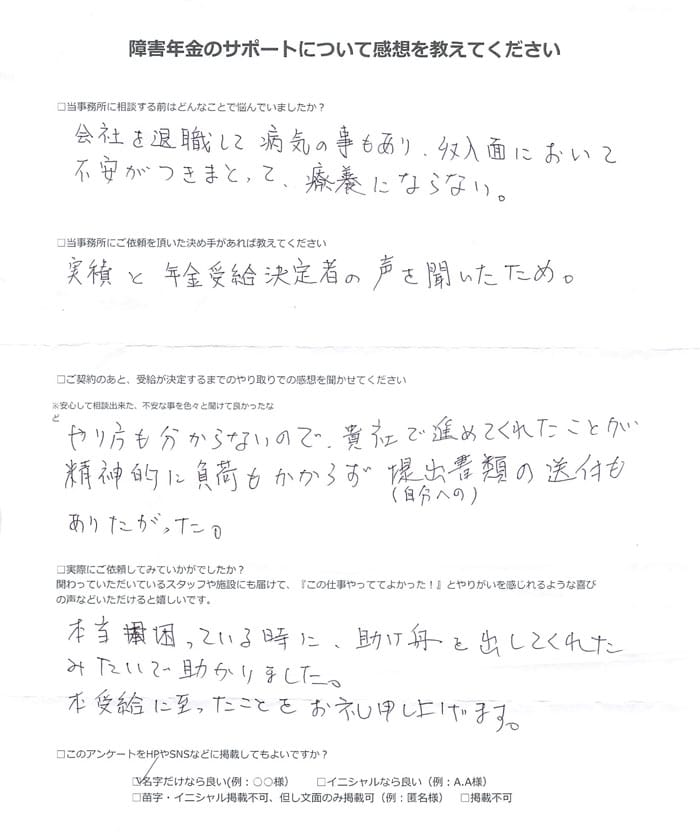 障害年金のサポートについて感想を教えてください
□当事務所に相談する前はどんなことで悩んでいましたか？
会社を退職して病気の事もあり、収入面において
不安がつきまとって、療養にならない。
□当事務所にご依頼を頂いた決め手があれば教えてください
実積と年金受給決定者の声を聞いたため。
□ご契約のあと、受給が決定するまでのやり取りでの感想を聞かせてください
※安心して相談出来た、不安な事を色々と聞けて良かったな
ど
やり方も分からないので、貴社で進めてくれたことが
精神的に負荷もかからず 提出書類の送付も
(自分への)
ありたがった。
□実際にご依頼してみていかがでしたか？
関わっていただいているスタッフや施設にも届けて、『この仕事やっててよかった！』とやりがいを感じれるような喜び
の声などいただけると嬉しいです。
本当困っている時に、助け舟を出してくれた
みたいで助かりました。
本受給に至ったことをお礼申し上げます。
□このアンケートをHPやSNSなどに掲載してもよいですか？
☑名字だけなら良い(例：○○様） □イニシャルなら良い（例：A.A様）
□苗字・イニシャル掲載不可、但し文面のみ掲載可（例：匿名様） □掲載不可